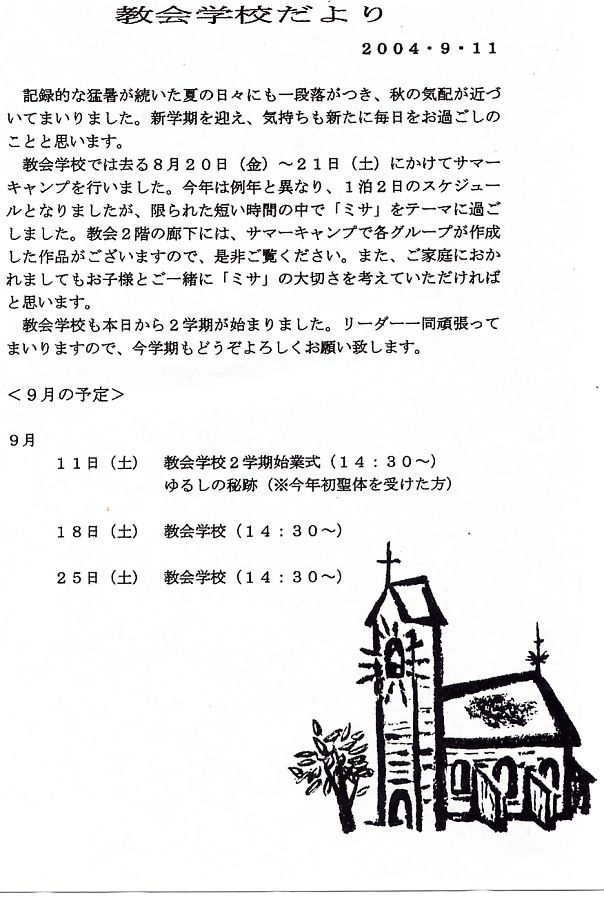 教会学校だより
２００４・９・１１
記録的な猛暑が続いた夏の日々にも一段落がつき、秋の気配が近づ
いてまいりました。新学期を迎え、気持ちも新たに毎日をお過ごしの
ことと思います。
教会学校では去る８月２０日（金）～２１日（土）にかけてサマー
キャンプを行いました。今年は例年と異なり、１泊２日のスケジュー
ルとなりましたが、限られた短い時間の中で「ミサ」をテーマに過ご
しました。教会２階の廊下には、サマーキャンプで各グループが作成
した作品がございますので、是非ご覧ください。また、ご家庭におか
れましてもお子様とご一緒に「ミサ」の大切さを考えていただければ
と思います。
教会学校も本日から２学期が始まりました。リーダー一同頑張って
まいりますので、今学期もどうぞよろしくお願い致します。
＜９月の予定＞
９月
１１日（土）　教会学校２学期始業式（１４：３０～）
ゆるしの秘跡（※今年初聖体を受けた方）
１８日（土）　教会学校（１４：３０～）
２５日（土）　教会学校（１４：３０～）